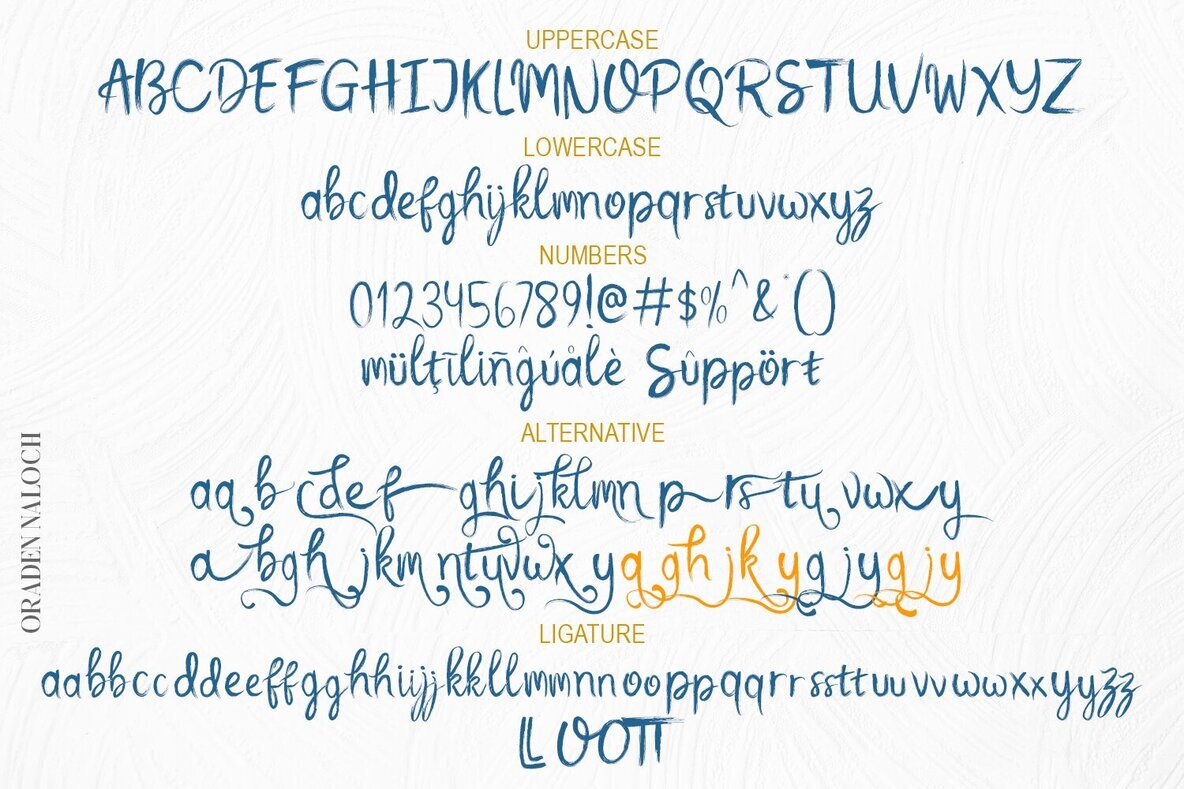 UPPERCASE
ABCDEFGHIJKLMNOPQRSTUVWXYZ
LOWERCASE
abcdefghijklmnopqrstuvwxyz
NUMBERS
0123456789!@#$%^&*()
mülţīliñĝúålè Sûppörŧ
ALTERNATIVE
aq b cdef ghijklmn p rs tu vwx y
a bgh jkm ntuvwx y q gh jk y g jy q jy
LIGATURE
aabbccddeeffgghhiijjkkllmmnnooppqqrrssttuuvvwwxxyyzz
LL OOTT
ORADEN NALOCH